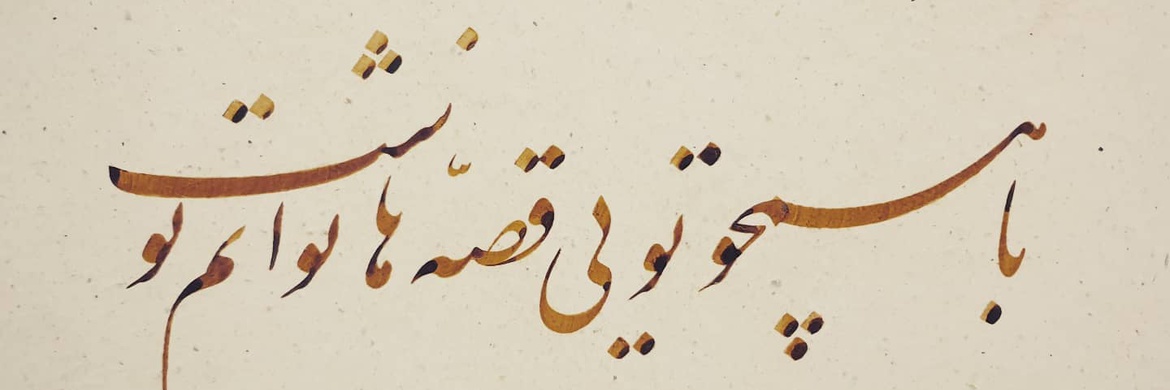 با همچو تویی قصّه ها توانم نوشت